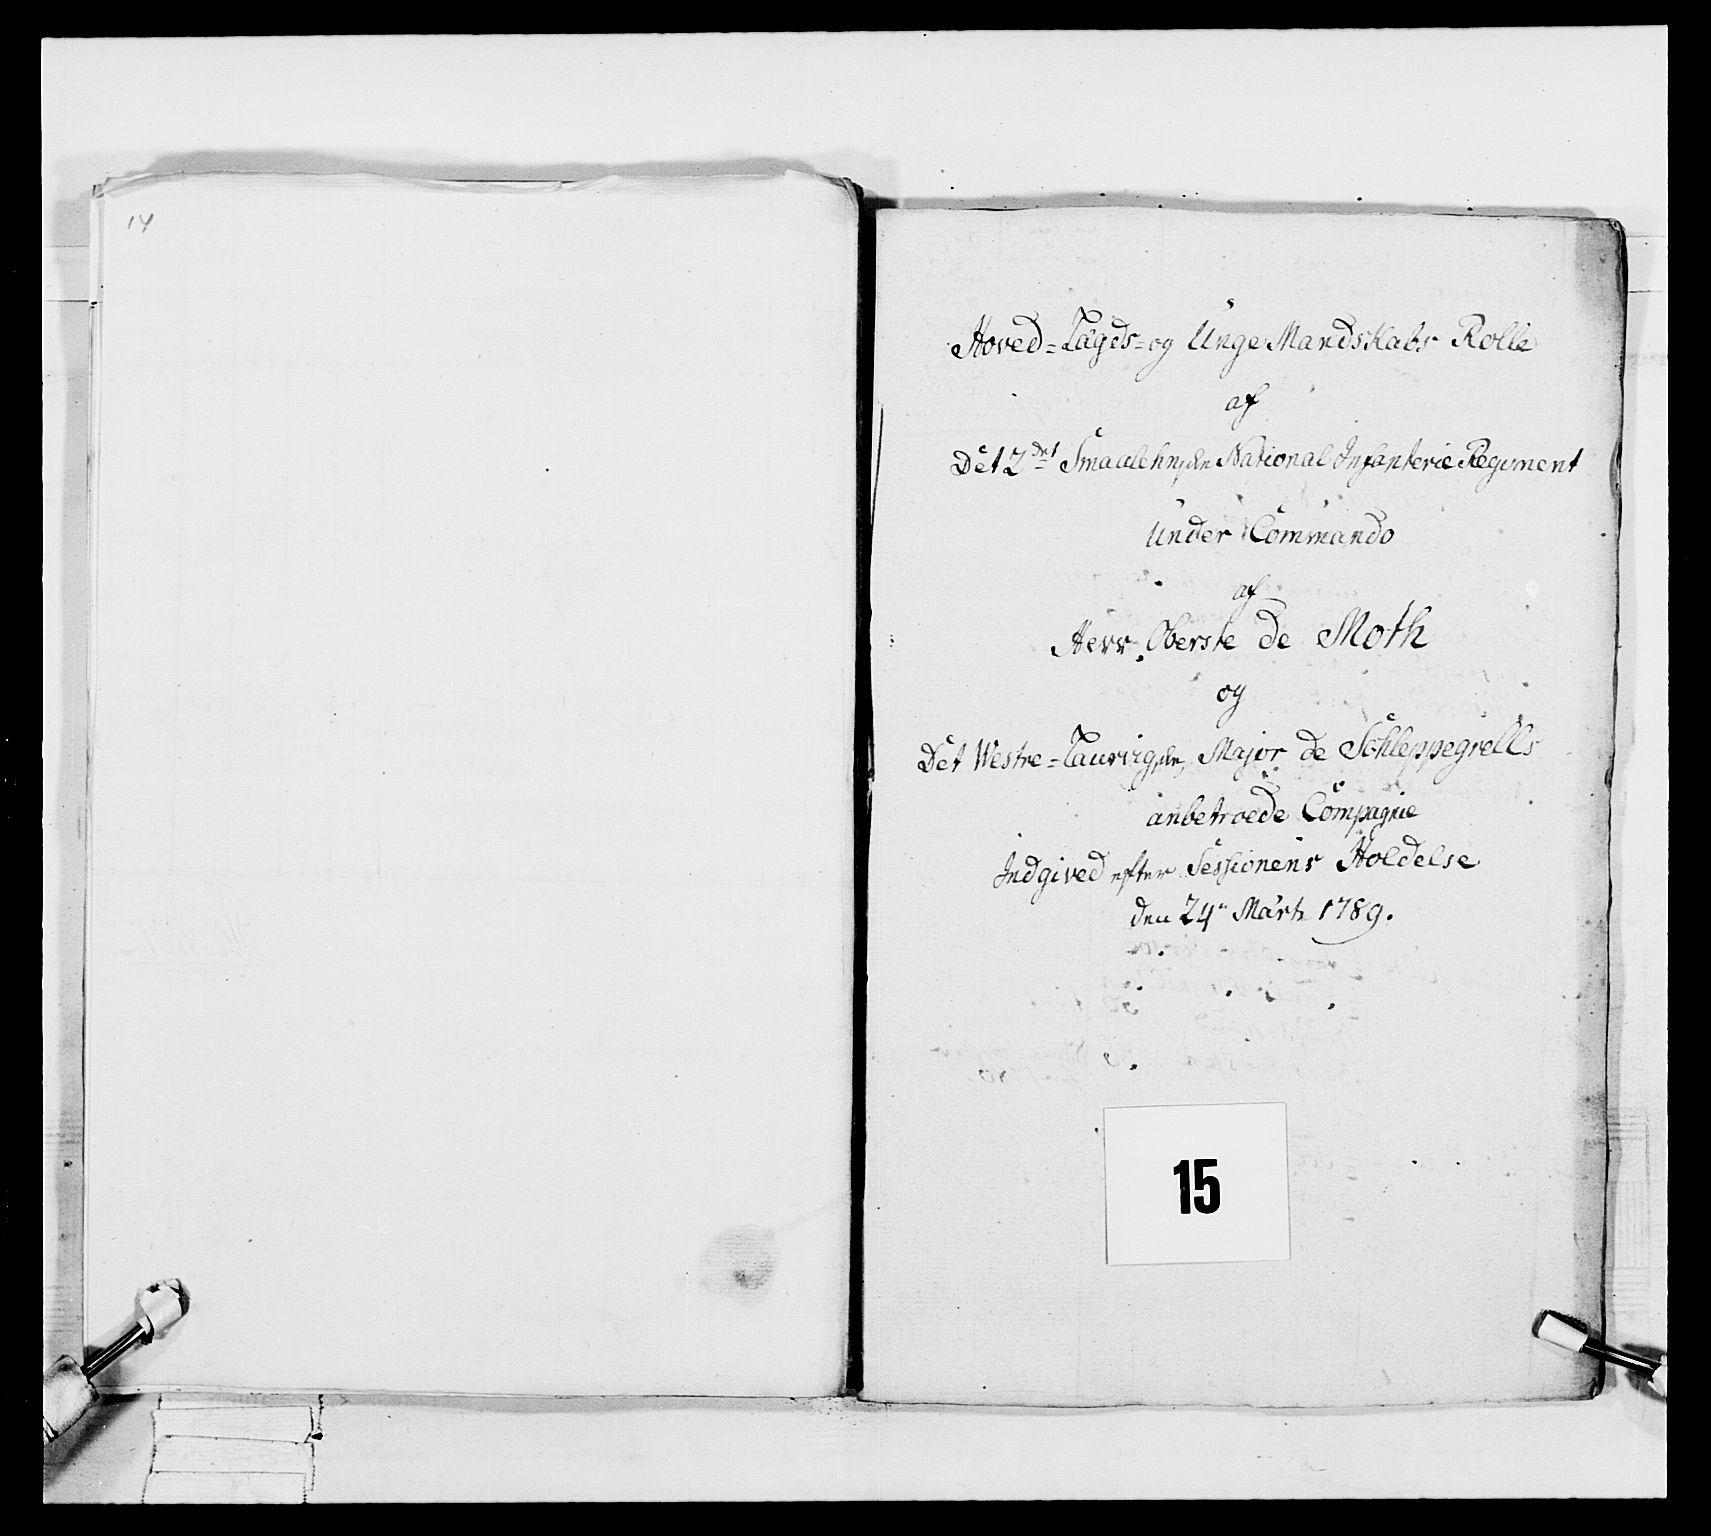 14
Hoved-Lægds- og Unge Mandskabs Rolle
af
Det 2det Smaalehnske National Infanterie Regiment
Under Commando
af
Herr Oberste de Moth
og
Det Westre-Laurvigske, Major de Schleppegrells
anbetroede Compagnie
Indgived efter Sessionens Holdelse
den 24n Marti 1789.
15